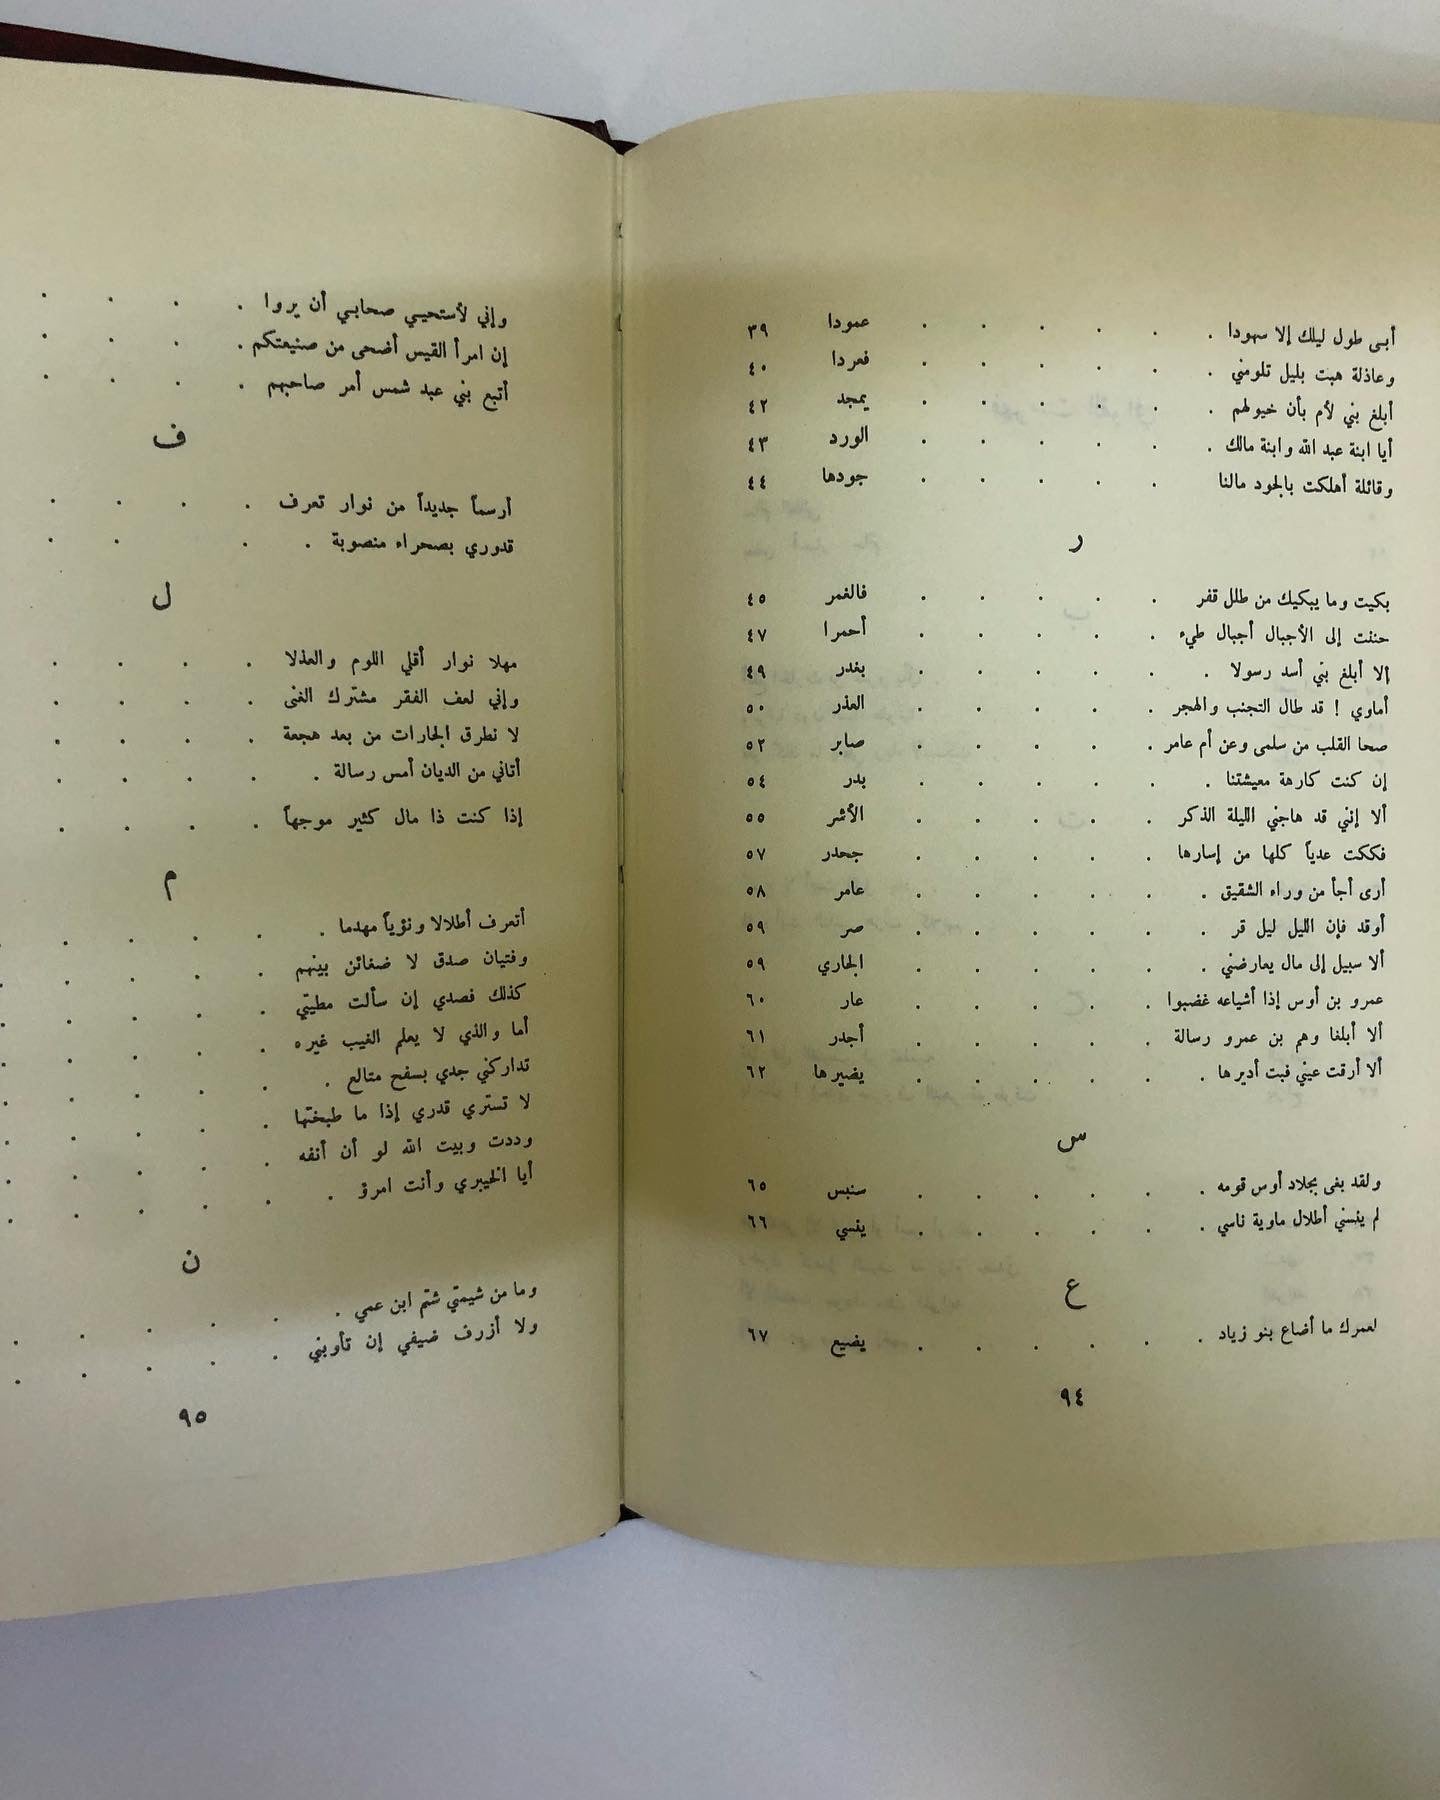 أبى طول ليلك إلا سهودا . . . . . عمودا ٣٩
وعاذلة هبت بليل تلومني . . . . . . فعردا ٤٠
أبلغ بني لأم بأن خيولهم . . . . . . يمجد ٤٢
أيا ابنة عبد الله وابنة مالك . . . . . . الورد ٤٣
وقائلة أهلكت بالجود مالنا . . . . . جودها ٤٤
ر
بكيت وما يبكيك من طلل قفر . . . . . فالغمر ٤٥
حننت إلى الأجبال أجبال طيء . . . . . أحمرا ٤٧
ألا أبلغ بني أسد رسولا . . . . . . بغدر ٤٩
أماوي ! قد طال التجنب والهجر . . . . . العذر ٥٠
صحا القلب من سلمى وعن أم عامر . . . . . صابر ٥٢
إن كنت كارهة معيشتنا . . . . . . بدر ٥٤
ألا إنني قد هاجني الليلة الذكر . . . . . الأشر ٥٥
فككت عدياً كلها من إسارها . . . . . جحدر ٥٧
أرى أجأ من وراء الشقيق . . . . . . عامر ٥٨
أوقد فإن الليل ليل قر . . . . . . صر ٥٩
ألا سبيل إلى مال يعارضني . . . . . . الجاري ٥٩
عمرو بن أوس إذا أشياعه غضبوا . . . . . عار ٦٠
ألا أبلغا وهم بن عمرو رسالة . . . . . أجدر ٦١
ألا أرقت عيني فبت أديرها . . . . . . يضيرها ٦٢
س
ولقد بغى بجلاد أوس قومه . . . . . . سنبس ٦٥
لم ينسني أطلال ماوية ناسي . . . . . . ينسي ٦٦
ع
لعمرك ما أضاع بنو زياد . . . . . . يضيع ٦٧
٩٤
وإني لأستحيي صحابي أن يروا . . . .
إن امرأ القيس أضحى من صنيعتكم . . . .
أتبع بني عبد شمس أمر صاحبهم . . . .
ف
أرسماً جديداً من نوار تعرف . . . .
قدوري بصحراء منصوبة . . . .
ل
مهلا نوار أقلي اللوم والعذلا . . . .
وإني لعف الفقر مشترك الغنى . . . .
لا نطرق الجارات من بعد هجعة . . . .
أتاني من الديان أمس رسالة . . . . .
إذا كنت ذا مال كثير موجهاً . . . .
م
أتعرف أطلالا ونؤياً مهدما . . . . . .
وفتيان صدق لا ضغائن بينهم . . . . .
كذلك فصدي إن سألت مطيتي . . . . .
أما والذي لا يعلم الغيب غيره . . . . .
تداركني جدي بسفح متالع . . . . . .
لا تستري قدري إذا ما طبختها . . . . .
وددت وبيت الله لو أن أنفه . . . . .
أيا الخيبري وأنت امرؤ . . . . . .
ن
وما من شيمتي شتم ابن عمي . . . . . .
ولا أزرف ضيفي إن تأوبني . . . . .
٩٥